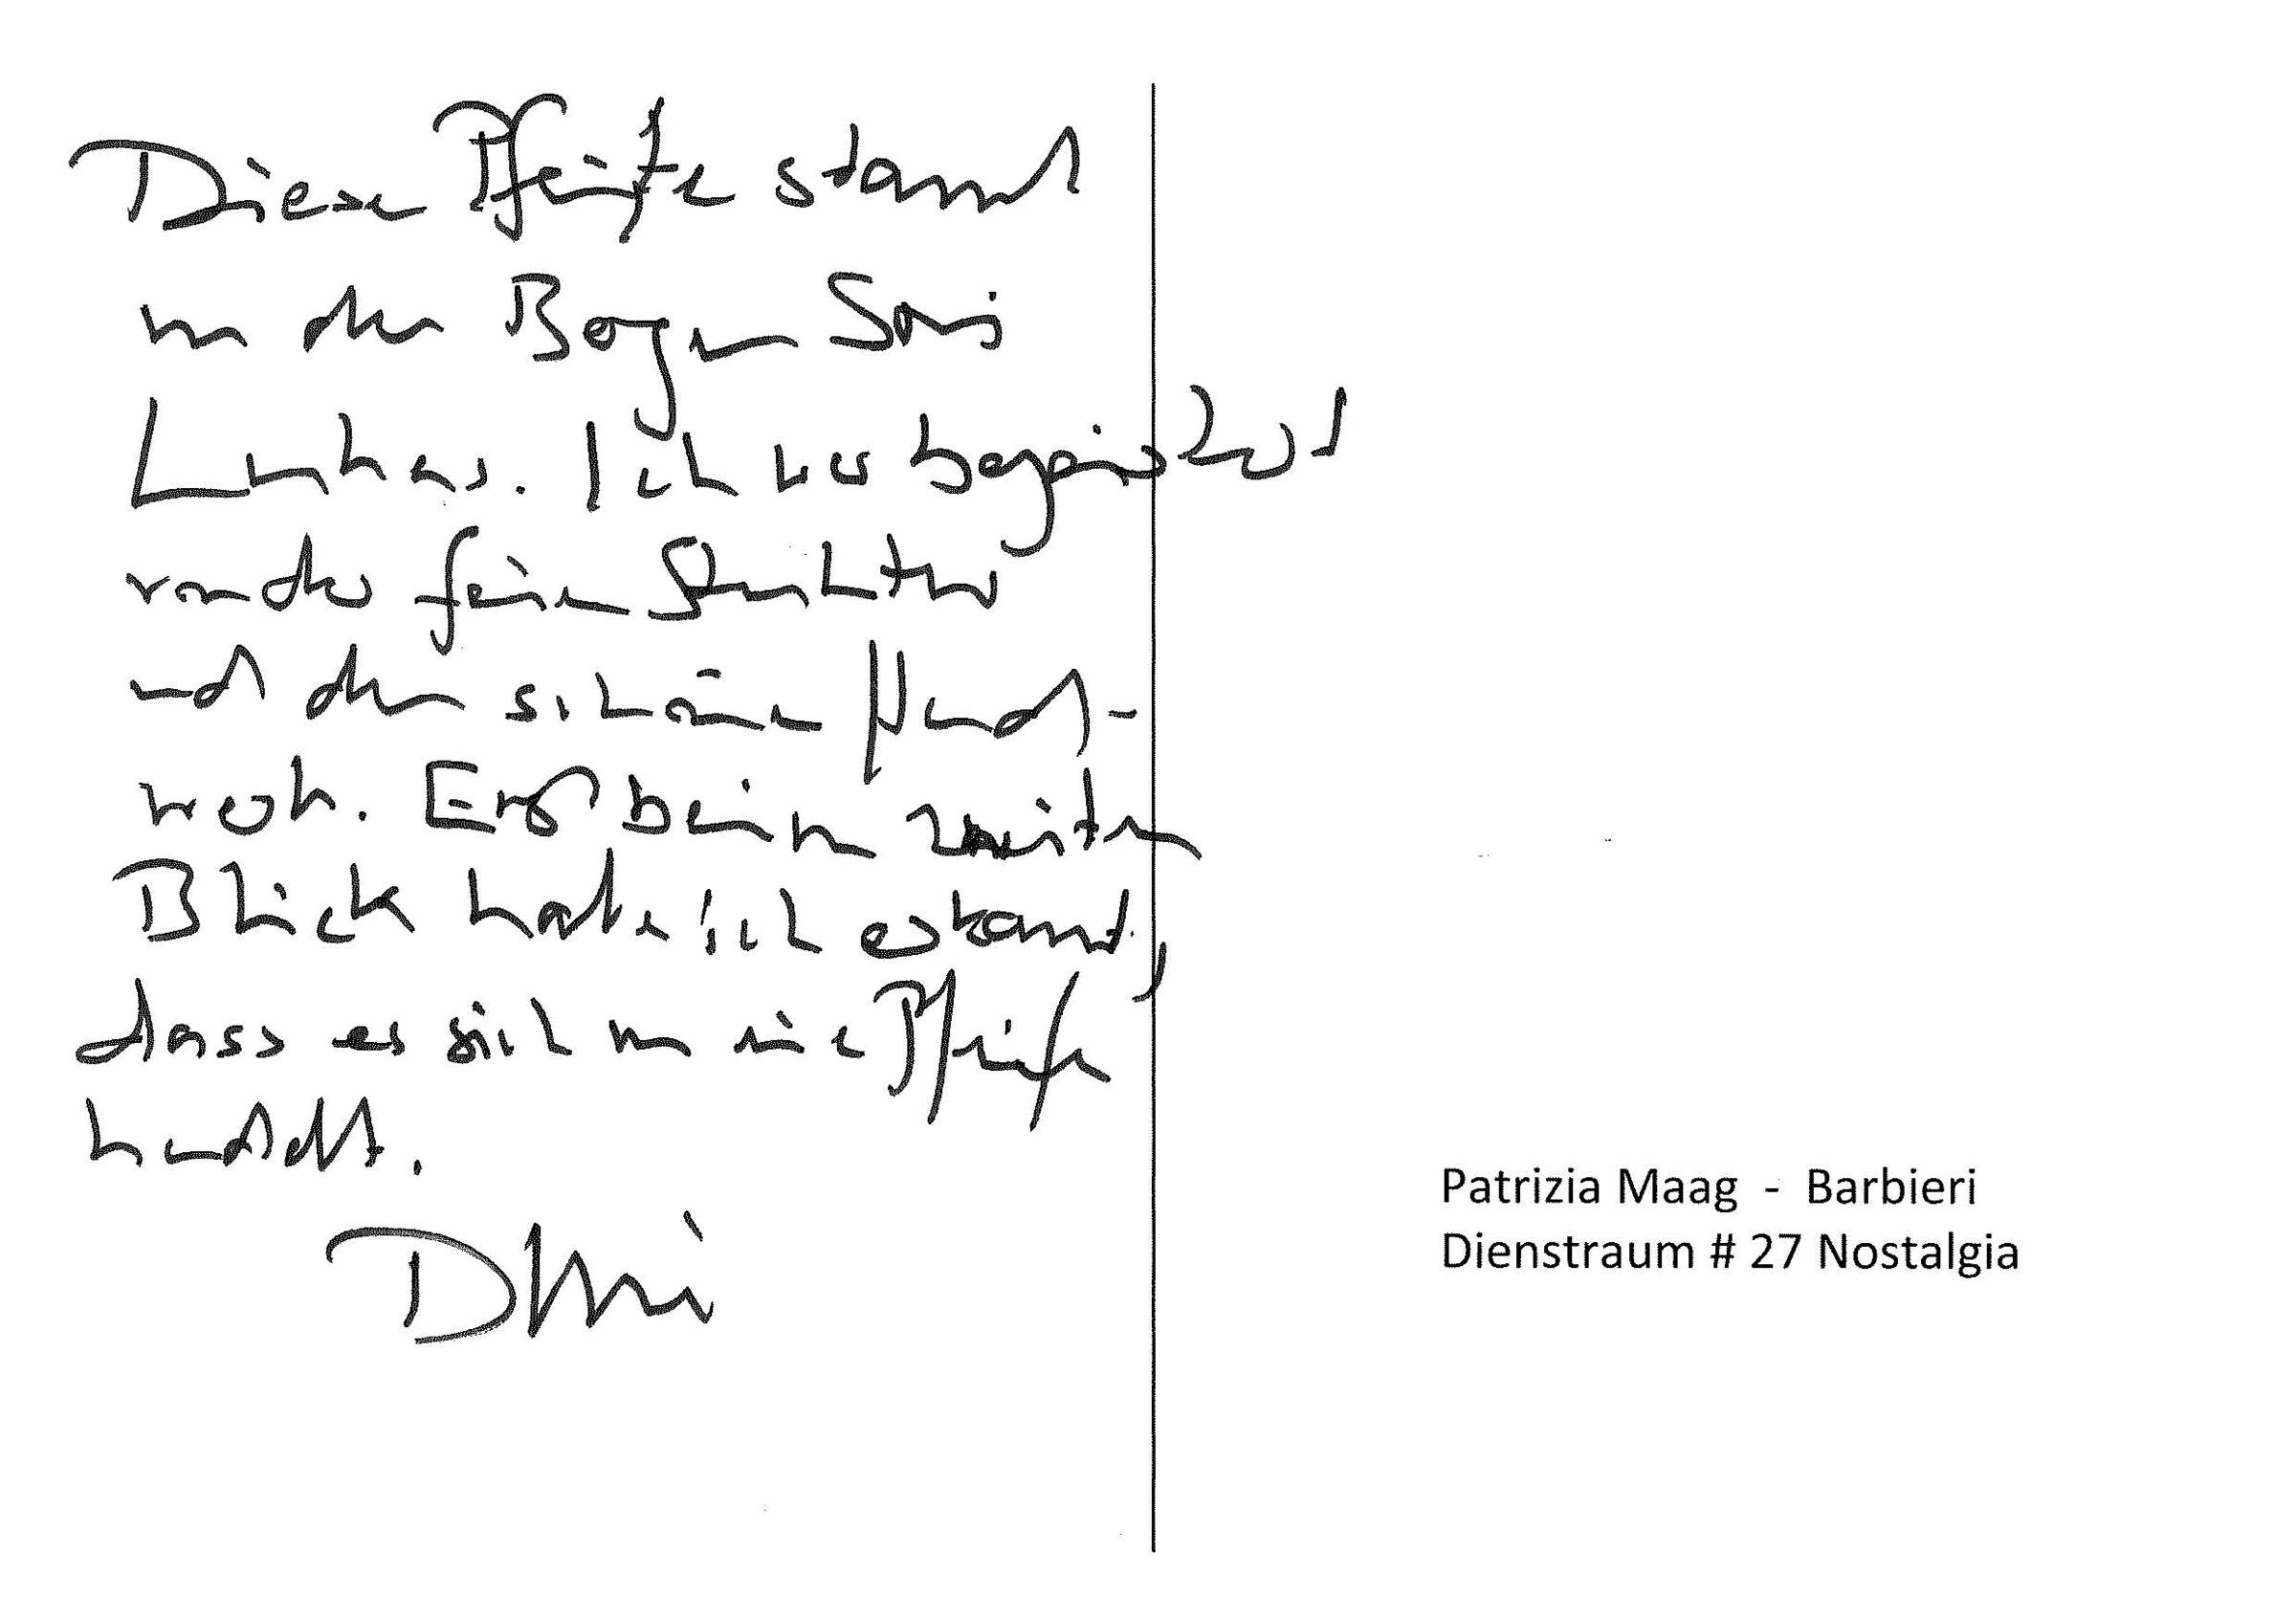 Diese Pfeife stammt
von den Bogen
Lukas. Ich war begeistert
von der feinen Struktur
und dem schönen Hand-
werk. Erst beim zweiten
Blick habe ich erkannt,
dass es sich um eine Pfeife
handelt.
Patrizia Maag - Barbieri
Dienstraum # 27 Nostalgia